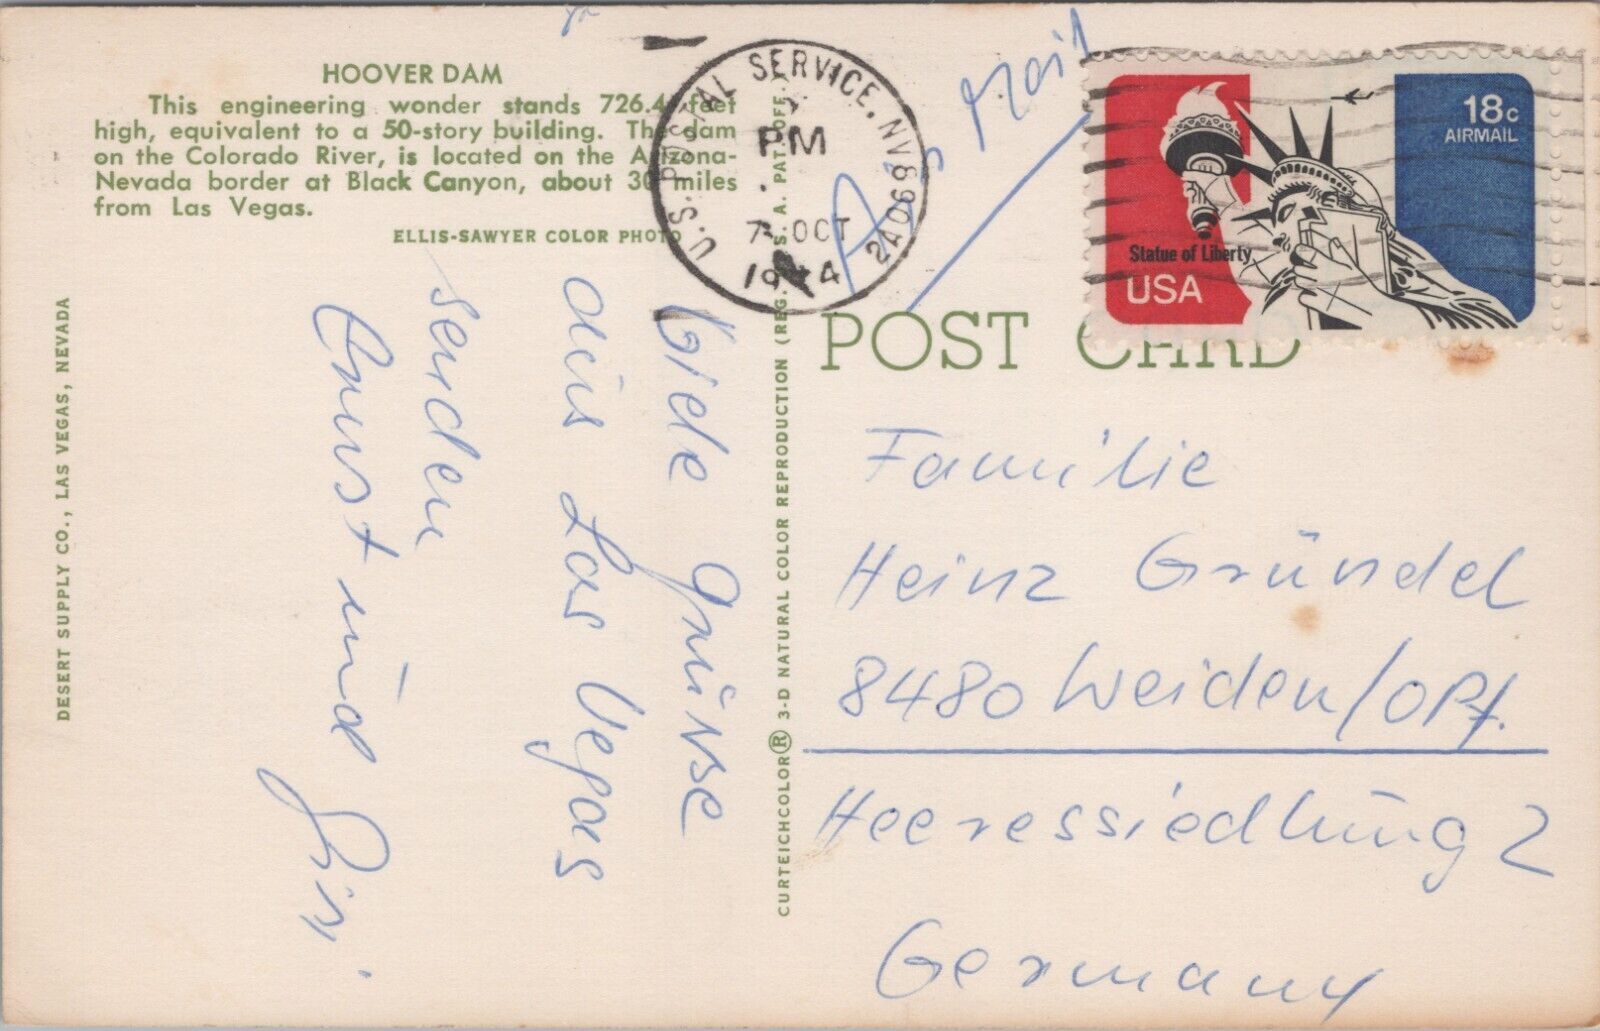 HOOVER DAM
This engineering wonder stands 726.4 feet
high, equivalent to a 50-story building. The dam
on the Colorado River, is located on the Arizona-
Nevada border at Black Canyon, about 30 miles
from Las Vegas.
ELLIS-SAWYER COLOR PHOTO
DESERT SUPPLY CO., LAS VEGAS, NEVADA
Viele Grüsse
aus Las Vegas
senden
Ernst und
CURTEICHCOLOR® 3-D NATURAL COLOR REPRODUCTION (REG. U.S.A. PAT. OFF.)
U.S. POSTAL SERVICE, NV 890
PM
7 OCT
1974
2A
Mail
18c
AIRMAIL
Statue of Liberty
USA
POST CARD
Familie
Heinz Gründel
8480 Weiden/OPf.
Heeressiedlung 2
Germany